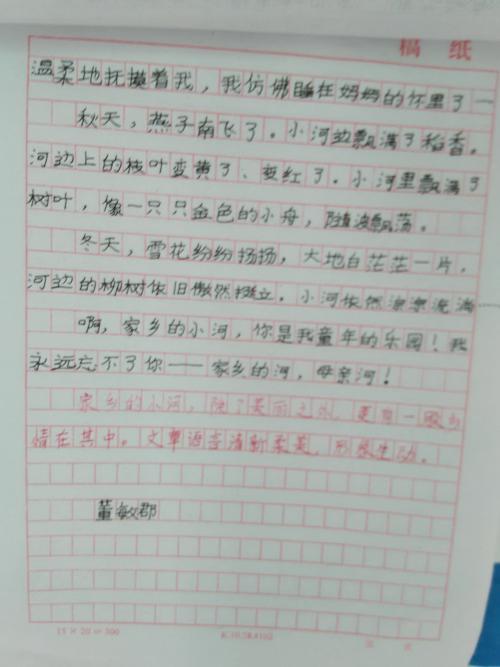 稿 纸
温柔地抚摸着我，我仿佛睡在妈妈的怀里了一
秋天，燕子南飞了。小河边飘满了稻香。
河边上的枝叶变黄了、变红了。小河里飘满了
树叶，像一只只金色的小舟，随波飘荡。
冬天，雪花纷纷扬扬，大地白茫茫一片，
河边的柳树依旧傲然挺立。小河依然潺潺流淌
啊，家乡的小河，你是我童年的乐园！我
永远忘不了你——家乡的河，母亲河！
家乡的小河，除了美丽之外，更有一股乡
情在其中。文章语言清新柔美，形象生动。
董敏郡
15 × 20 = 300